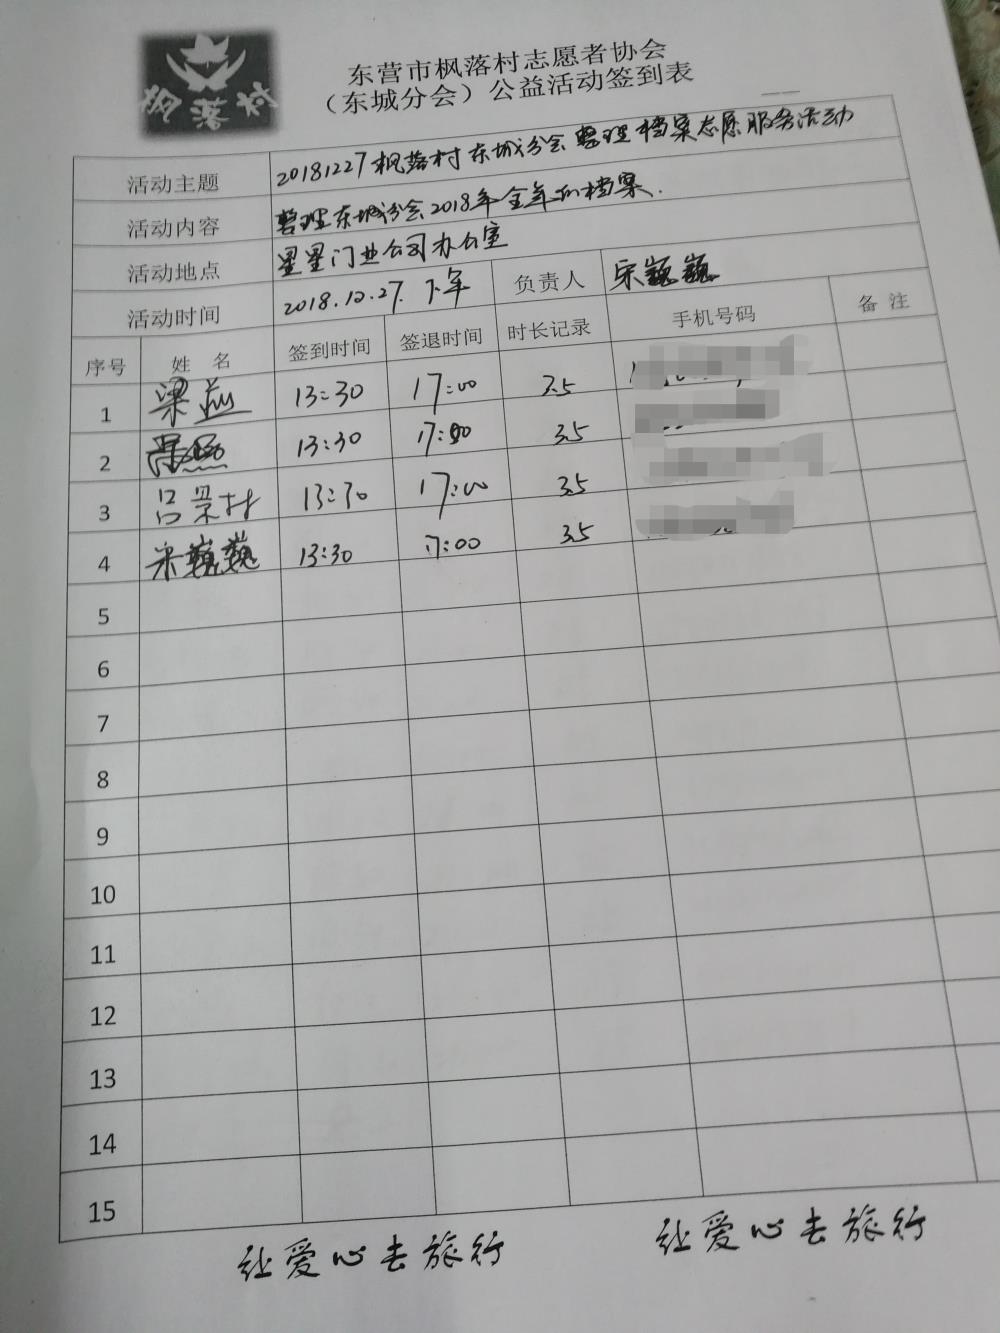 枫落村
东营市枫落村志愿者协会
（东城分会）公益活动签到表
活动主题 20181227枫落村东城分会整理档案志愿服务活动
活动内容 整理东城分会2018年全年的档案.
活动地点 星星门业公司办公室
活动时间 2018.12.27.下午 负责人 宋巍巍
序号 姓 名 签到时间 签退时间 时长记录 手机号码 备 注
1 梁 13:30 17:00 3.5
2 13:30 17:00 3.5
3 吕梁村 13:30 17:00 3.5
4 宋巍巍 13:30 17:00 3.5
5
6
7
8
9
10
11
12
13
14
15
让爱心去旅行 让爱心去旅行